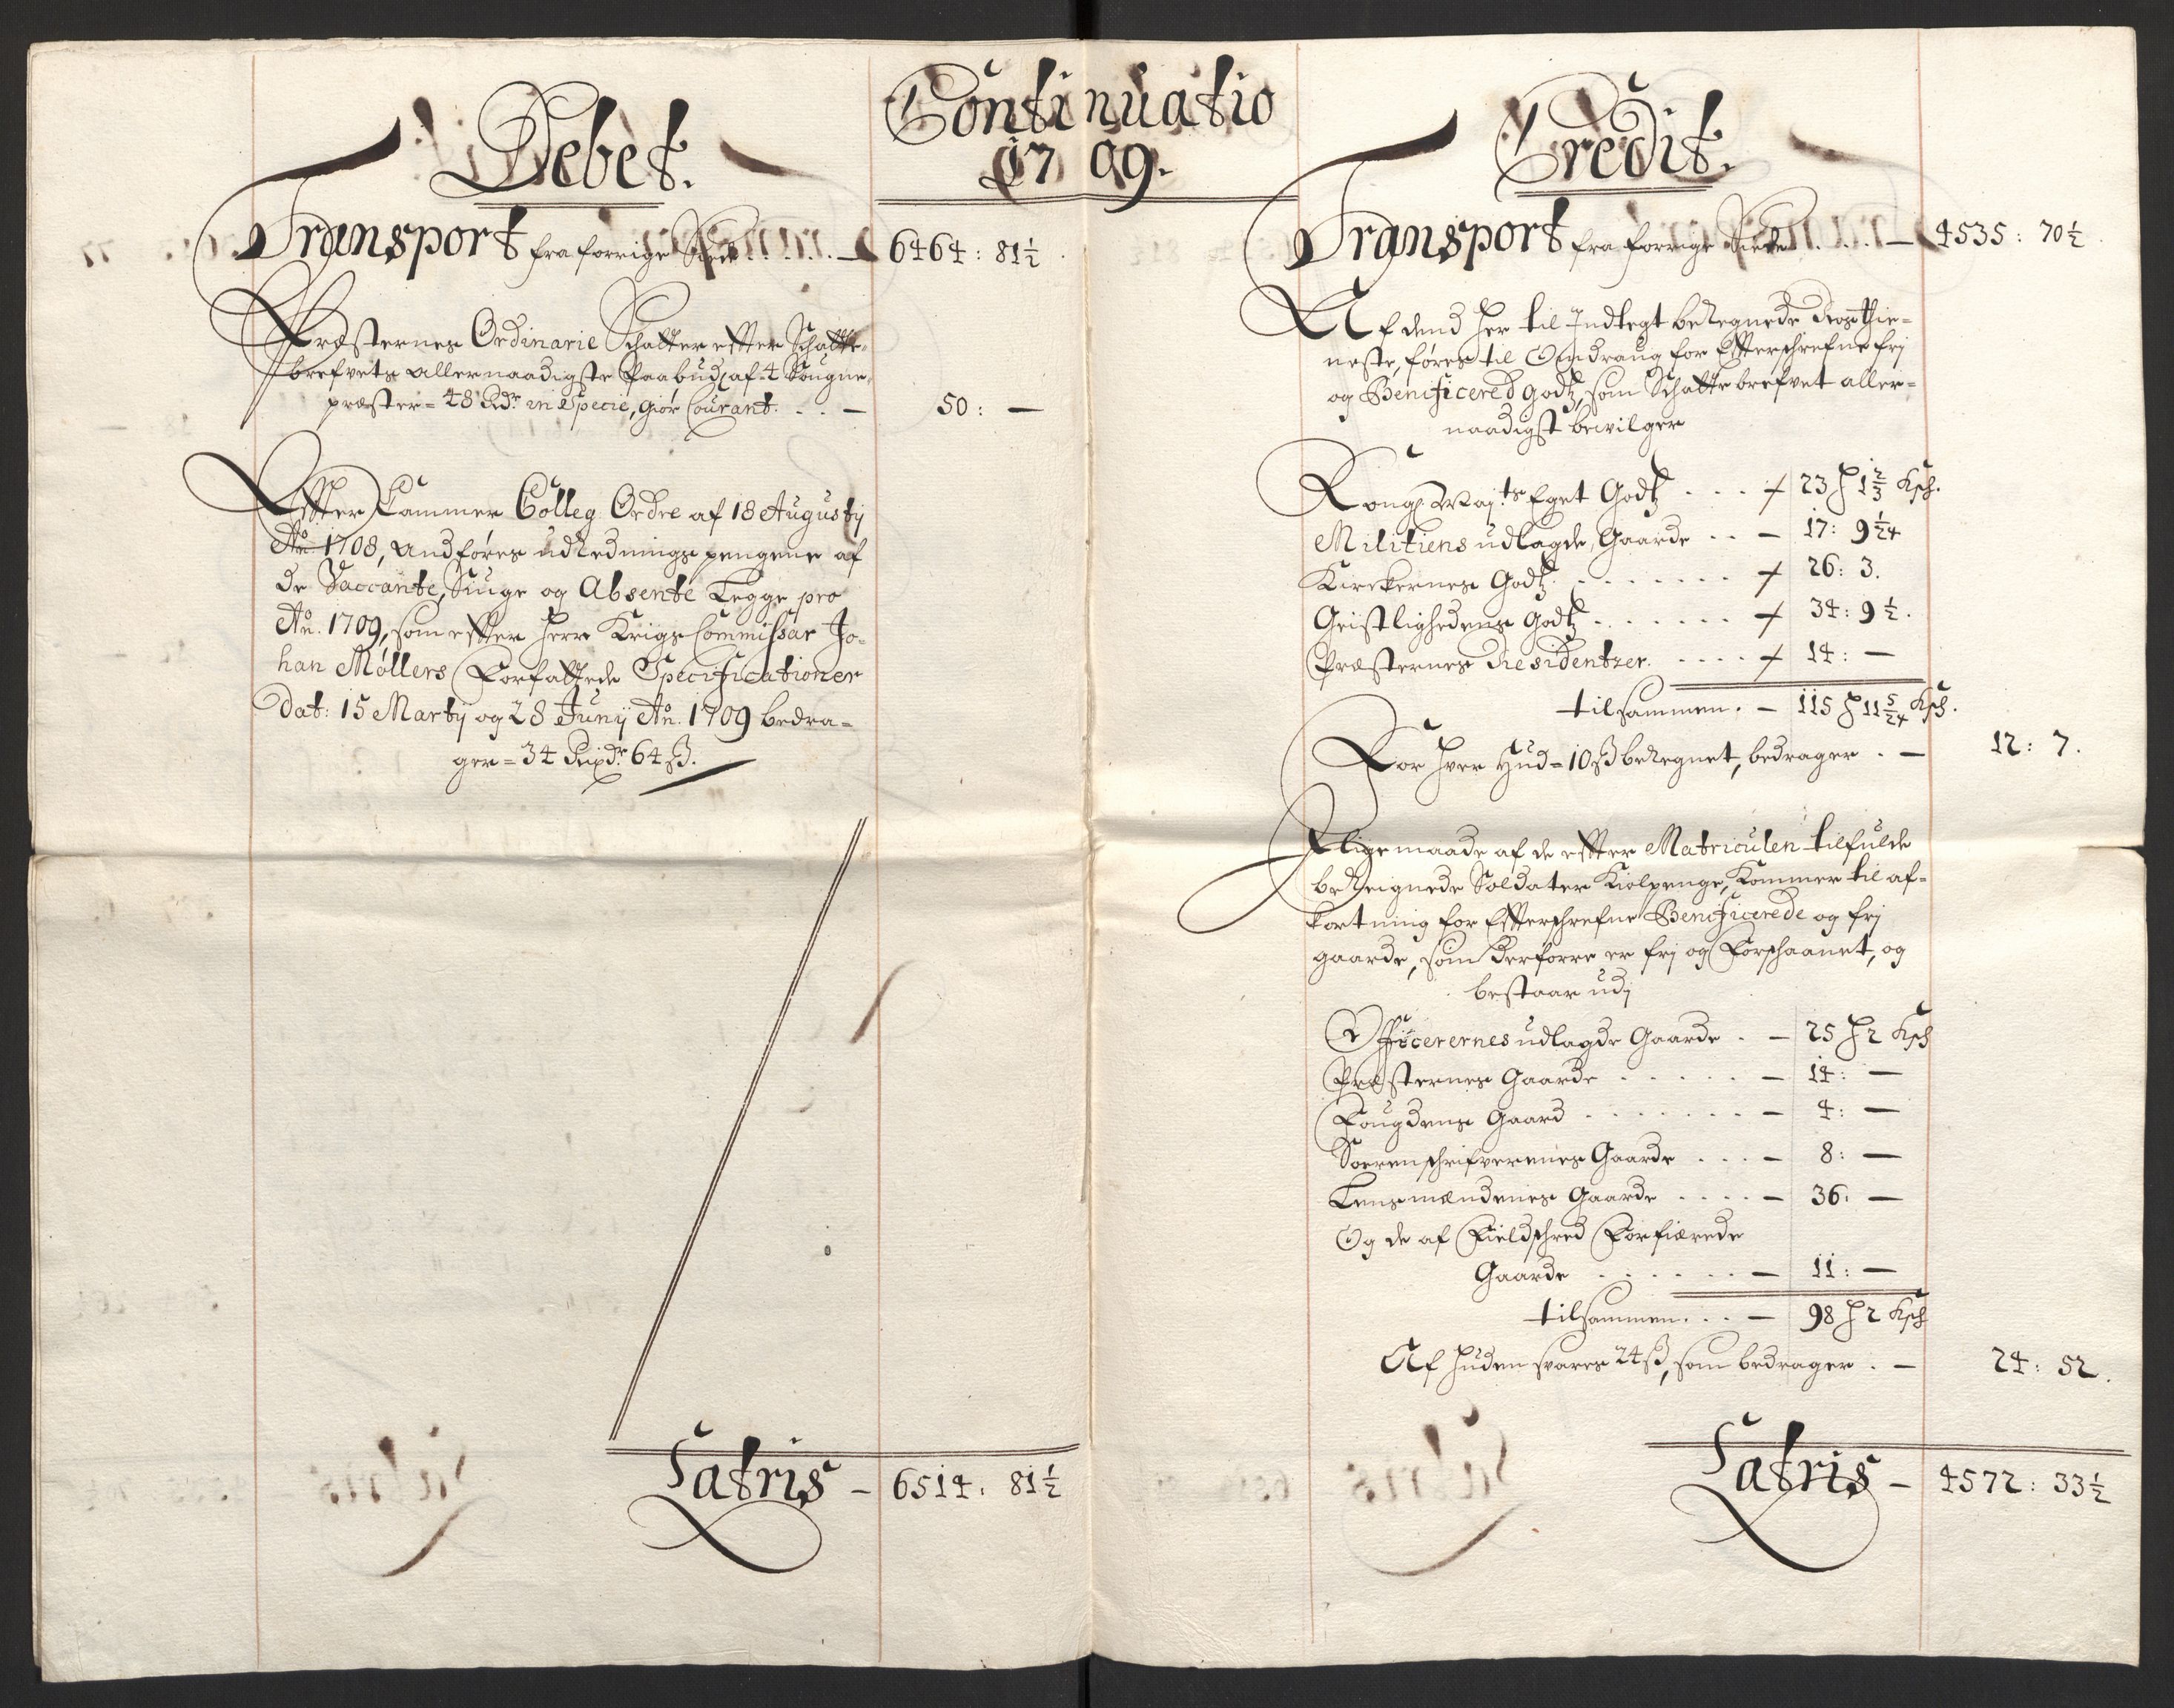 Continuatio
1709.
Debet.
Transport fra forrige Side . . . . . — 6464: 81½
Præsternes Ordinarie Schatter effter Schatte-
brefvets allernaadigste Paabud, af 4 Sougne-
præster = 48 Rdr in Specie, giør Courant. . . — 50: —
Effter Cammer Colleg. Ordre af 18 Augustij
Ao. 1708, Undføres udRednings pengene af
de Vaccante, Siuge og Absente Legge pro
Ao. 1709, som effter Herr Krigs Commissar Jo-
han Møllers Forfattede Specificationer
dat: 15 Martij og 28 Junij Ao. 1709 bedra-
ger = 34 Rixdr. 64 ß.
Latris — 6514: 81½
Credit.
Transport fra forrige Side . . . . — 4535: 70½
Af dend her til Indtegt beRegnede Ros thie-
neste, føres til Omdraug for Effterschrefne frj
og Beneficered godtz, som Schatte brefvet aller-
naadigst bewilger
Kongl. Maj.ts Eget Godtz . . . 23 H 1⅔ Ksch.
Militiens udlagde Gaarde . . — 17: 9 1/24
Kirckernes Godtz . . . . . . . 26: 3.
Geistlighedens Godtz . . . . . . 34: 9½.
Præsternes Residentzer. . . . . 14: —
tilsammen. — 115 H 11 5/24 Ksch.
For hver Hud = 10 ß beRegnet, bedrager . — 12: 7.
Ligemaade af de effter Matriculen tilfulde
beReignede Soldater Kiolpenge, Kommer til af-
kortning for Effterschrefne Beneficerede og frj
gaarde, som derforre er frj og Forschaanet, og
bestaar udj
Officerernes udlagde Gaarde . — 25 H 2 Ksch
Præsternes Gaarde . . . . . — 14: —
Fougdens Gaard . . . . . . . — 4: —
Sorenschrifverenes Gaarde . . . — 8: —
Lensmændenes Gaarde . . . . — 36: —
Og de af Fieldschred Forfiærede
Gaarde . . . . . . — 11: —
tilsammen. . . — 98 H 2 Ksch
Af Huden svares 24 ß, som bedrager . — 24: 52.
Latris — 4572: 33½